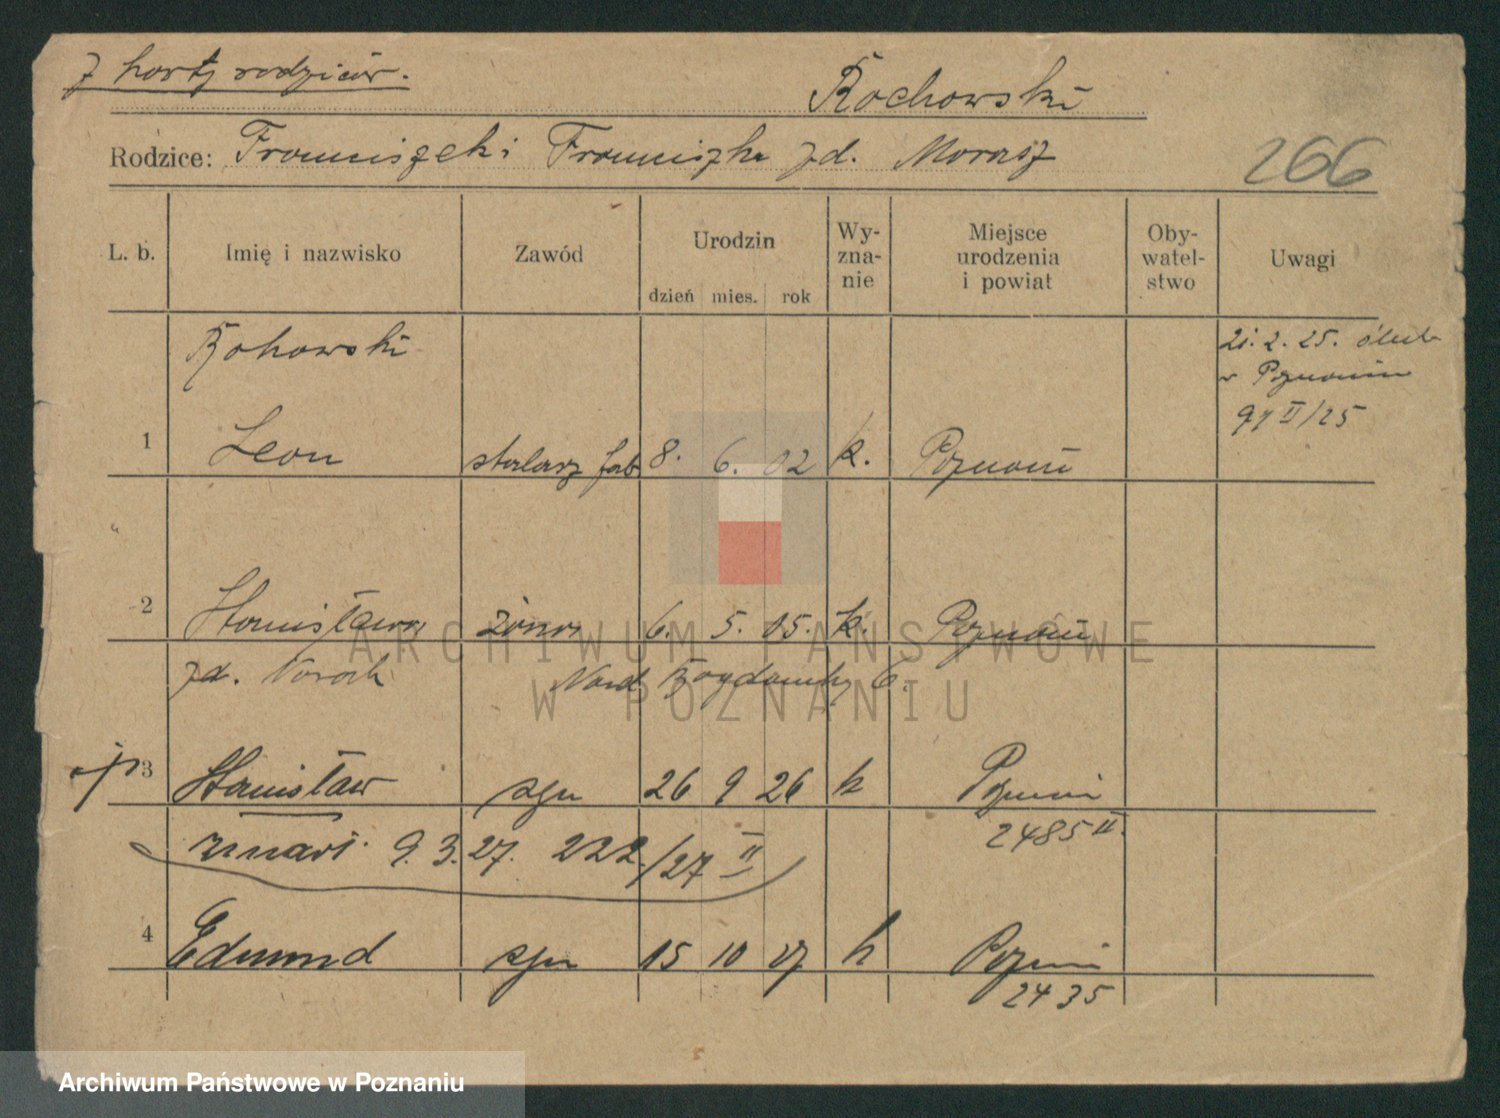 z karty rodziców.
Rochowski
Rodzice: Franciszek i Franciszka zd. Morasz
266
L. b.
Imię i nazwisko
Zawód
Urodzin
dzień mies. rok
Wy-
zna-
nie
Miejsce
urodzenia
i powiat
Oby-
watel-
stwo
Uwagi
Rohowski
21. 2. 25. ślub
w Poznaniu
97 II/25
1 Leon stolarz fab 8. 6. 02 k. Poznań
2 Stanisława żona 6. 5. 05. k. Poznań
zd. Noroch Nand. Bogdanky 6.
3 Stanisław syn 26 9 26 k Poznań
2485 II.
zmarł. 9. 3. 27. 222./27 II
4 Edmund syn 15 10 27 k Poznań
2435
ARCHIWUM PAŃSTWOWE
W POZNANIU
Archiwum Państwowe w Poznaniu